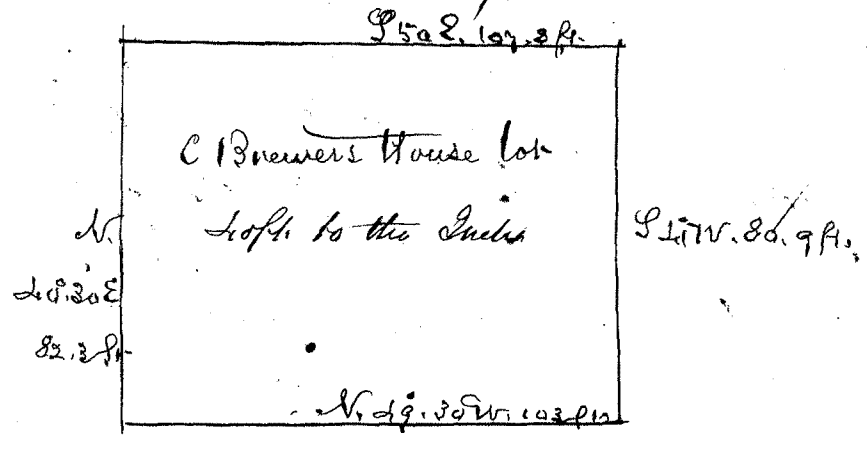 S 50 E. 107.3 ft.
C Brewers House lot
40 ft. to the Inch
N.
40°.30 E
82.3 ft.
S 41 W. 80.9 ft.
N. 49.30 W. 103 ft